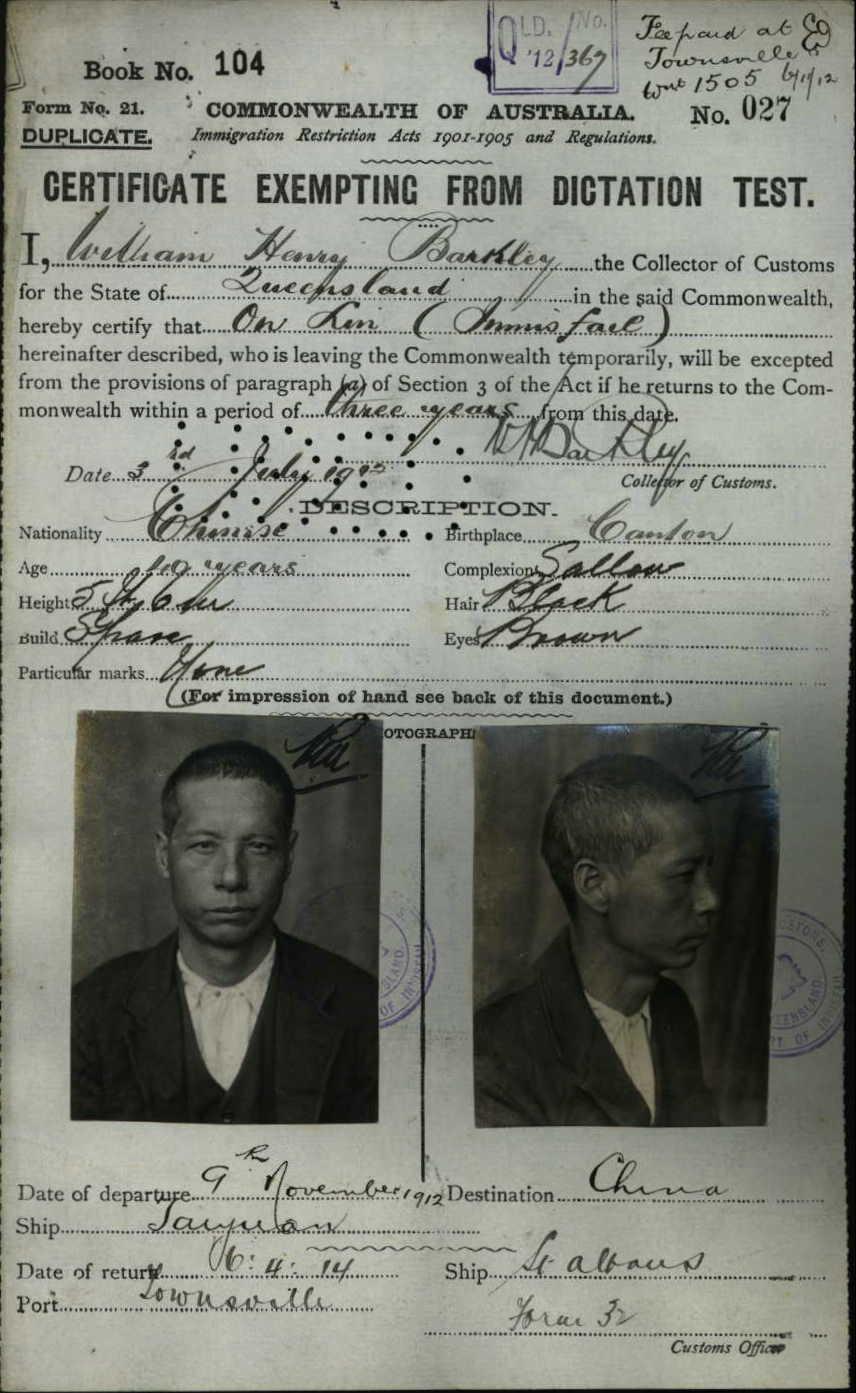 QLD. No.
'12/367
Fee paid at
Townsville
1505 6/11/12
Book No. 104
Form No. 21. COMMONWEALTH OF AUSTRALIA. No. 027
DUPLICATE. Immigration Restriction Acts 1901-1905 and Regulations.
CERTIFICATE EXEMPTING FROM DICTATION TEST.
I, William Henry Barkley the Collector of Customs
for the State of Queensland in the said Commonwealth,
hereby certify that On Kin (Innisfail)
hereinafter described, who is leaving the Commonwealth temporarily, will be excepted
from the provisions of paragraph (a) of Section 3 of the Act if he returns to the Com-
monwealth within a period of three years from this date.
WHBarkley
Date 3rd July 1912 Collector of Customs.
DESCRIPTION.
Nationality Chinese Birthplace Canton
Age 49 years Complexion Sallow
Height 5 ft 6 in Hair Black
Build Spare Eyes Brown
Particular marks None
(For impression of hand see back of this document.)
OTOGRAPH
Date of departure 9th November 1912 Destination China
Ship Taiyuan
Date of return 6:4:14 Ship St Albans
Port Townsville
Form 32
Customs Officer